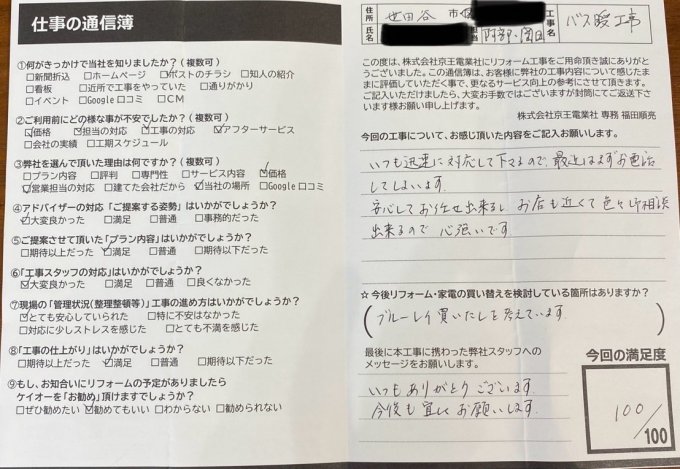 仕事の通信簿
①何がきっかけで当社を知りましたか?(複数可)
□新聞折込 □ホームページ ☑ポストのチラシ □知人の紹介
□看板 □近所で工事をやっていた □通りがかり
□イベント □Google口コミ □CM
②ご利用前にどの様な事が不安でしたか?(複数可)
☑価格 ☑担当の対応 ☑工事の対応 ☑アフターサービス
□会社の実績 □工期スケジュール
③弊社を選んで頂いた理由は何ですか?(複数可)
□プラン内容 □評判 □専門性 □サービス内容 ☑価格
☑営業担当の対応 □建てた会社だから ☑当社の場所 □Google口コミ
④アドバイザーの対応「ご提案する姿勢」はいかがでしょうか?
☑大変良かった □満足 □普通 □事務的だった
⑤ご提案させて頂いた「プラン内容」はいかがでしょうか?
□期待以上だった ☑満足 □普通 □期待以下だった
⑥「工事スタッフの対応」はいかがでしょうか?
☑大変良かった □満足 □普通 □良くなかった
⑦現場の「管理状況(整理整頓等)」工事の進め方はいかがでしょうか?
☑とても安心していられた □特に不安はなかった
□対応に少しストレスを感じた □とても不満を感じた
⑧「工事の仕上がり」はいかがでしょうか?
□期待以上だった ☑満足 □普通 □期待以下だった
⑨もし、お知合いにリフォームの予定がありましたら
ケイオーを「お勧め」頂けますでしょうか?
□ぜひ勧めたい ☑勧めてもいい □わからない □勧められない
住所 世田谷 市・区
氏名
担当 阿部・園田
工事名 バス暖工事
この度は、株式会社京王電業社にリフォーム工事をご用命頂き誠にありがとうございました。この通信簿は、お客様に弊社の工事内容について感じたままに評価していただく事で、更なるサービス向上の参考にさせて頂きます。
ご記入いただけましたら、大変お手数ではございますが封筒にてご返送下さいます様お願い申し上げます。
株式会社京王電業社 専務 福田順亮
今回の工事について、お感じ頂いた内容をご記入お願いします。
いつも迅速に対応して下さるので、最近はまずお電話
してしまいます。
安心してお任せ出来るし、お店も近くて色々ご相談
出来るので 心強いです
☆今後リフォーム・家電の買い替えを検討している箇所はありますか?
(ブルーレイ買いたしを考えています)
最後に本工事に携わった弊社スタッフへの
メッセージをお願いします。
いつもありがとうございます。
今後も宜しくお願いします。
今回の満足度
100/100